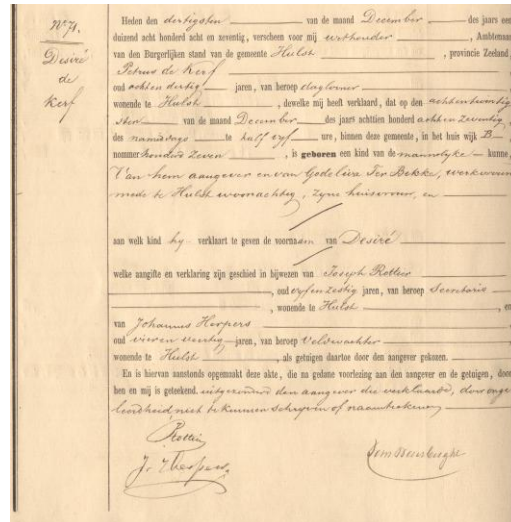 No 71.
Desiré
de
Kerf
Heden den dertigsten van de maand December des jaars een
duizend acht honderd acht en zeventig, verscheen voor mij Ambtenaar
van den Burgerlijken stand van de gemeente Hulst, provincie Zeeland,
Petrus de Kerf
oud acht en dertig jaren, van beroep daglooner
wonende te Hulst, dewelke mij heeft verklaard, dat op den achtentwintig
sten van de maand December des jaars achttien honderd acht en zeventig,
des namiddags te half elf ure, binnen deze gemeente, in het huis wijk B,
nommer honderd zeven, is geboren een kind van de mannelyke kunne,
Van hem aangever en van Godelieve Ter Bekke, werkvrouw
mede te Hulst woonachtig, zyne huisvrouw, en
aan welk kind hy verklaart te geven de voornaam van Desiré
welke aangifte en verklaring zijn geschied in bijwezen van Joseph
, oud elf en zestig jaren, van beroep Secretaris
, wonende te Hulst, en
van Johannes Herpers
oud vier en veertig jaren, van beroep Veldwachter
wonende te Hulst, als getuigen daartoe door den aangever gekozen.
En is hiervan aanstonds opgemaakt deze akte, die na gedane voorlezing aan den aangever en de getuigen, door
hen en mij is geteekend. uitgezonderd den aangever die verklaarde, door onge
leerdheid niet te kunnen schryven of naamteekenen
J. Herpers